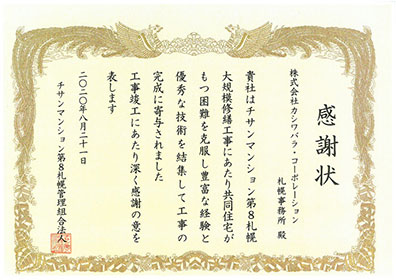 感謝状
株式会社カシワバラ・コーポレーション
札幌事務所 殿
貴社はチサンマンション第8札幌
大規模修繕工事にあたり共同住宅が
もつ困難を克服し豊富な経験と
優秀な技術を結集して工事の
完成に寄与されました
工事竣工にあたり深く感謝の意を
表します
二〇二〇年八月二十一日
チサンマンション第8札幌管理組合法人